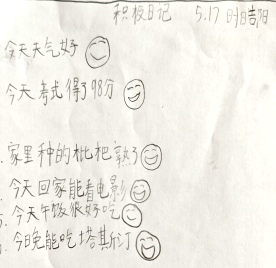 积极日记 5.17 晴
今天天气好
今天考式得了98分
家里种的枇杷熟了
今天回家能看电影
今天午饭很好吃
今晚能吃塔其斤汀